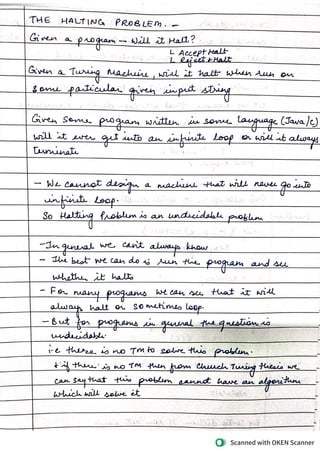 THE HALTING PROBLEM. -
Given a program - Will it Halt?
↳ Accept Halt
↳ Reject + Halt
Given a Turing Machine, will it halt when run on
some particular given input string
Given some program written in some language (Java/C)
will it ever get into an infinite loop or will it always
terminate
- We cannot design a machine that will never go into
infinite loop.
So Halting Problem is an undecidable problem
- In general we cant always know
- The best we can do is run the program and see
whether it halts
- For many programs we can see that it will
always halt or sometimes loop
- But for programs in general the question is
undecidable.
i.e there is no TM to solve this problem.
& if there is no TM then from Church Turing thesis we
can say that this problem cannot have an algorithm
which will solve it
Scanned with OKEN Scanner